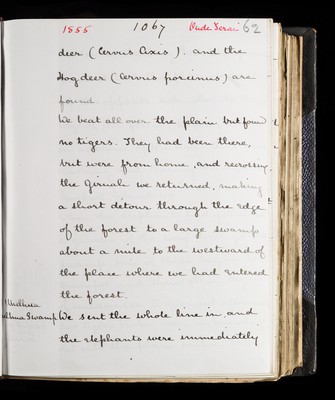 1855
1067
Oude Terai
62
deer (Cervus Axis). and the
Hogdeer (Cervus porcinus) are
found.
We beat all over the plain but found
no tigers. They had been there,
but were from home, and recrossing
the Girwah we returned, making
a short détour through the edge
of the forest to a large swamp
about a mile to the westward of
the place where we had entered
the forest.
Swamp
We sent the whole line in and
the elephants were immediately